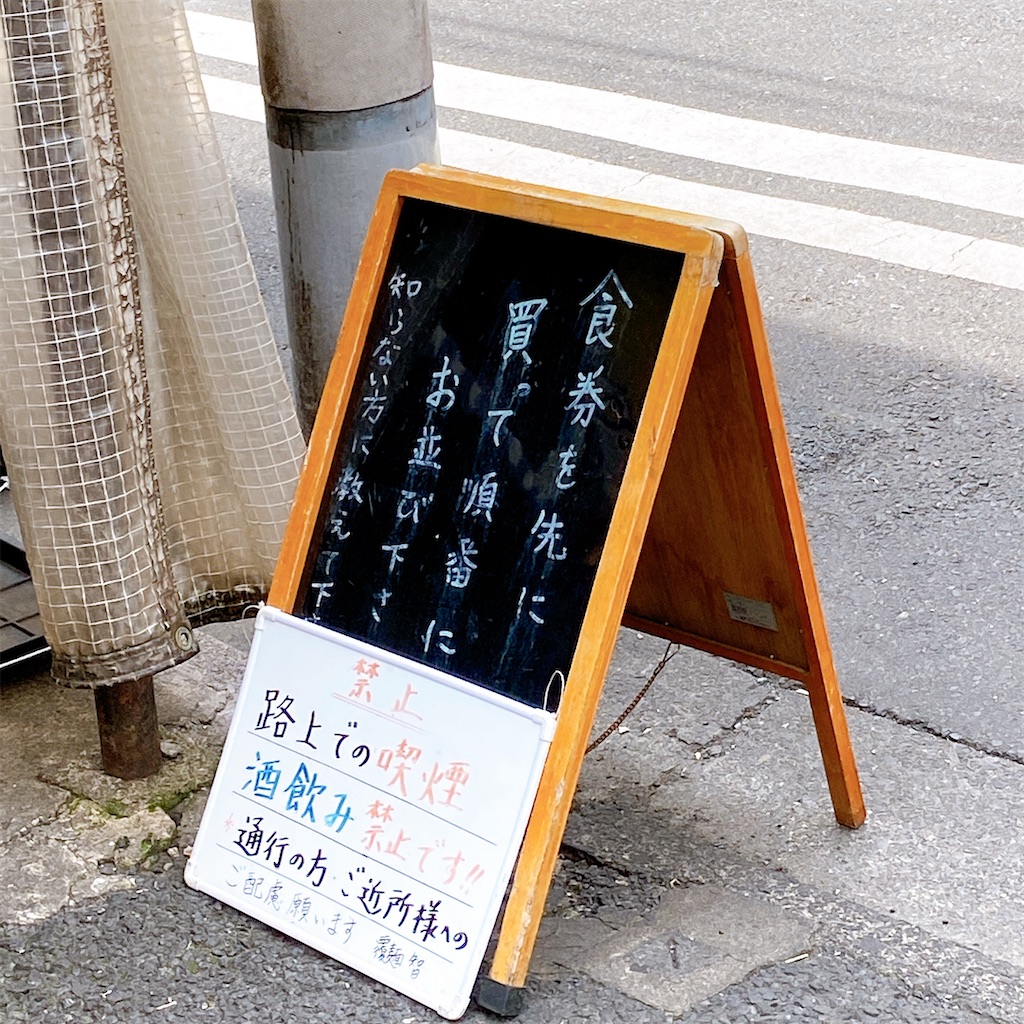 食券を先に
買って順番に
お並び下さ
知らない方に教えて下
禁止
路上での喫煙
酒飲み禁止です!!
*通行の方・ご近所様への
ご配慮願います 覆麺 智